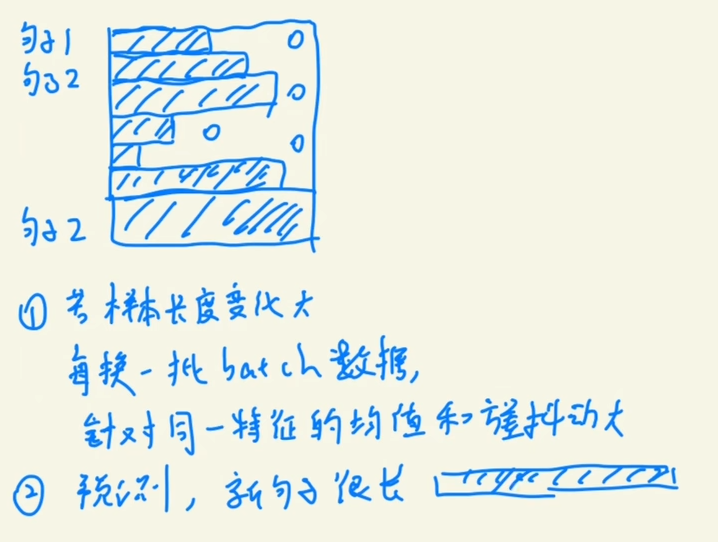 句子1
句子2
0
0
0
0
句子2
① 若样本长度变化大
每换一批batch数据,
针对同一特征的均值和方差抖动大
② 预测, 新句子很长